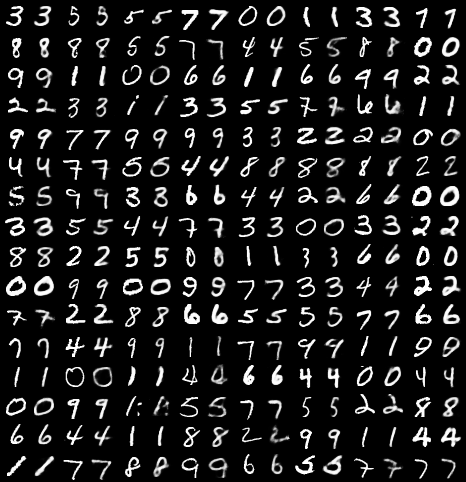 3 3 5 5 5 5 7 7 0 0 1 1 3 3 1 1
8 8 8 8 5 5 7 7 4 4 5 5 8 8 0 0
9 9 1 1 0 0 6 6 1 1 6 6 9 9 2 2
2 2 3 3 1 1 3 3 5 5 7 7 6 6 1 1
9 9 7 7 9 9 9 9 3 3 2 2 2 2 0 0
4 4 7 7 5 5 4 4 8 8 8 8 8 8 2 2
5 5 9 9 3 3 6 6 4 4 2 2 6 6 0 0
3 3 5 5 4 4 7 7 3 3 0 0 3 3 2 2
8 8 2 2 5 5 0 0 1 1 3 3 6 6 0 0
0 0 9 9 0 0 9 9 7 7 3 3 4 4 2 2
7 7 2 2 8 8 6 6 5 5 5 5 7 7 6 6
7 7 4 4 9 9 1 1 7 7 9 9 1 1 9 9
1 1 0 0 1 1 4 4 6 6 4 4 0 0 4 4
0 0 9 9 1 5 5 7 7 5 5 2 2 8 8
6 6 4 4 1 1 8 8 2 2 9 9 1 1 4 4
1 1 7 7 8 8 9 9 6 6 5 5 7 7 7 7